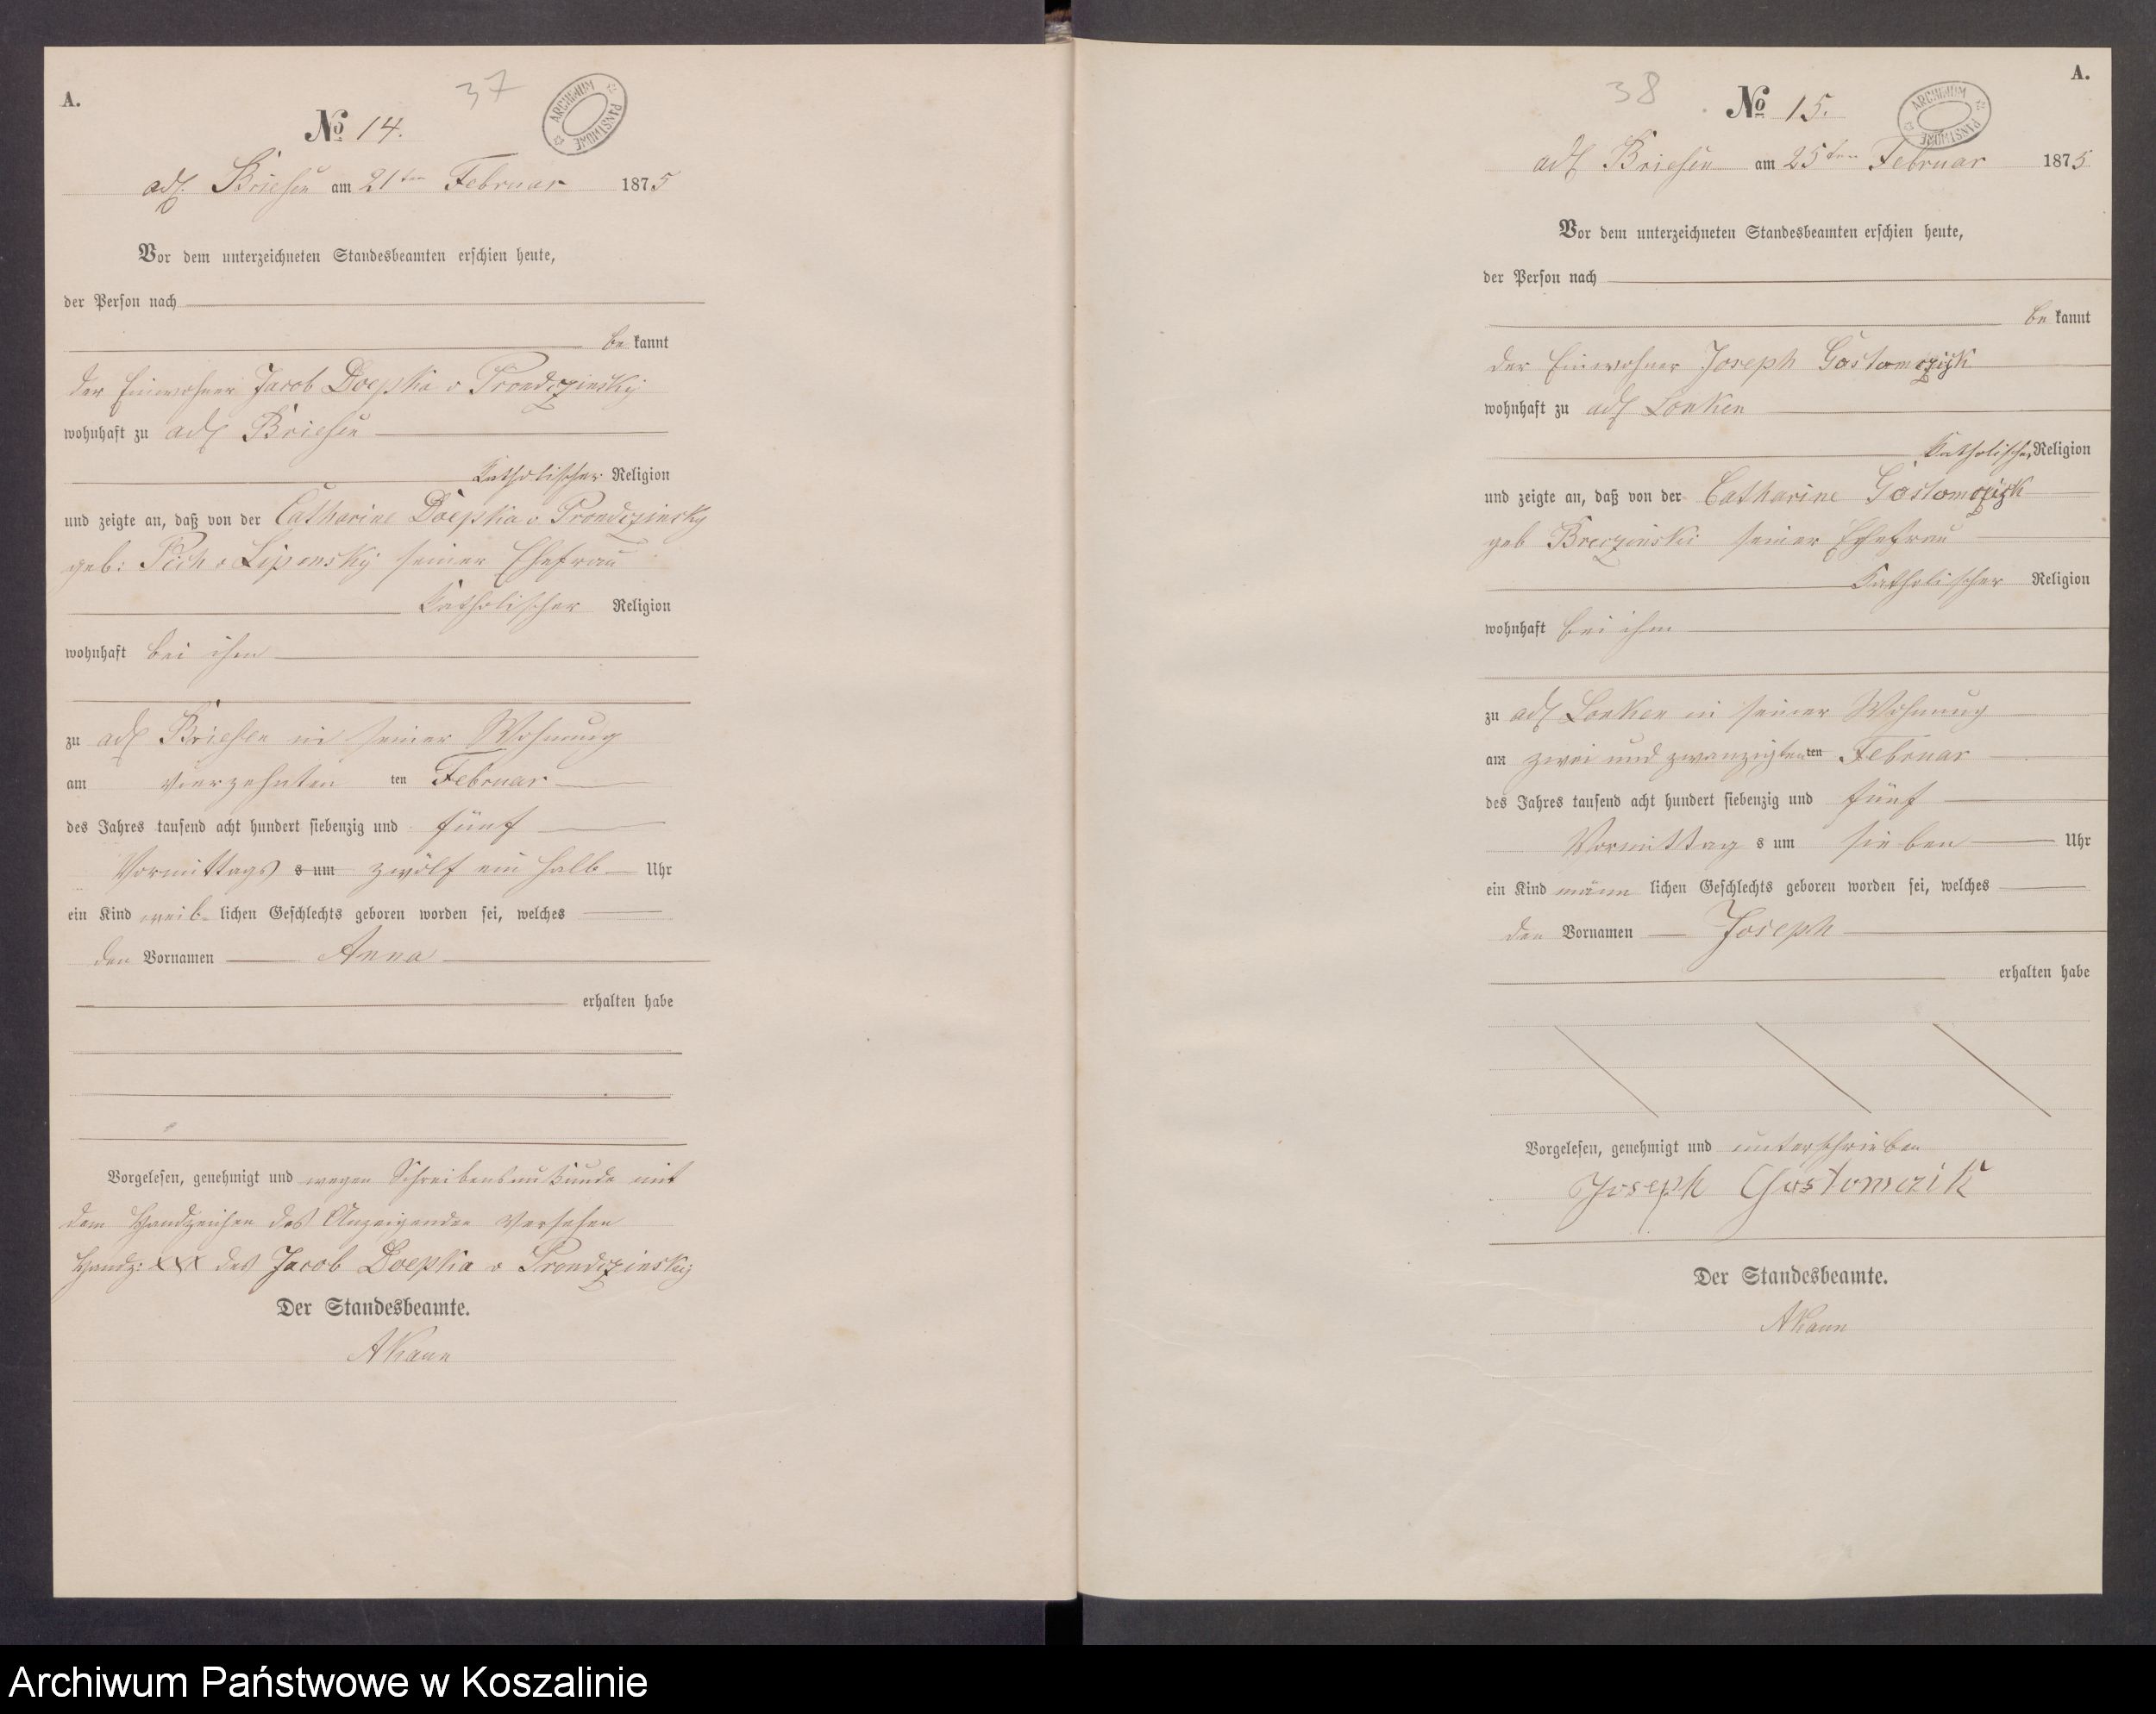 A.
37
ARCHIWUM PAŃSTWOWE
No 14.
adl. Briesen am 21ten Februar 1875
Vor dem unterzeichneten Standesbeamten erschien heute,
der Person nach
be kannt
der Einwohner Jacob Doepka v Prondzzinsky
wohnhaft zu adl Briesen
Katholischer Religion
und zeigte an, daß von der Catharine Doepka v. Prondzzinsky
geb: Pich v Lipinsky seiner Ehefrau
Katholischer Religion
wohnhaft bei ihm
zu adl Briesen in seiner Wohnung
am vierzehnten ten Februar
des Jahres tausend acht hundert siebenzig und fünf
Vormittags s um zwölf ein halb Uhr
ein Kind weib- lichen Geschlechts geboren worden sei, welches
den Vornamen Anna
erhalten habe
Vorgelesen, genehmigt und wegen Schreibensunkunde mit
dem Handzeichen des Anzeigenden versehen
Handz: xxx des Jacob Doepka v Prondzzinsky
Der Standesbeamte.
AKann
A.
38
ARCHIWUM PAŃSTWOWE
No 15.
adl Briesen am 25ten Februar 1875
Vor dem unterzeichneten Standesbeamten erschien heute,
der Person nach
be kannt
der Einwohner Joseph Gostomczyk
wohnhaft zu adl Lonken
Katholischer Religion
und zeigte an, daß von der Catharine Gostomczyk
geb Breczinski seiner Ehefrau
Katholischer Religion
wohnhaft bei ihm
zu adl Lonken in seiner Wohnung
am zwei und zwanzigten ten Februar
des Jahres tausend acht hundert siebenzig und fünf
Vormittag s um sieben Uhr
ein Kind männ lichen Geschlechts geboren worden sei, welches
den Vornamen Joseph
erhalten habe
Vorgelesen, genehmigt und unterschrieben
Joseph Gostomczik
Der Standesbeamte.
AKann
Archiwum Państwowe w Koszalinie